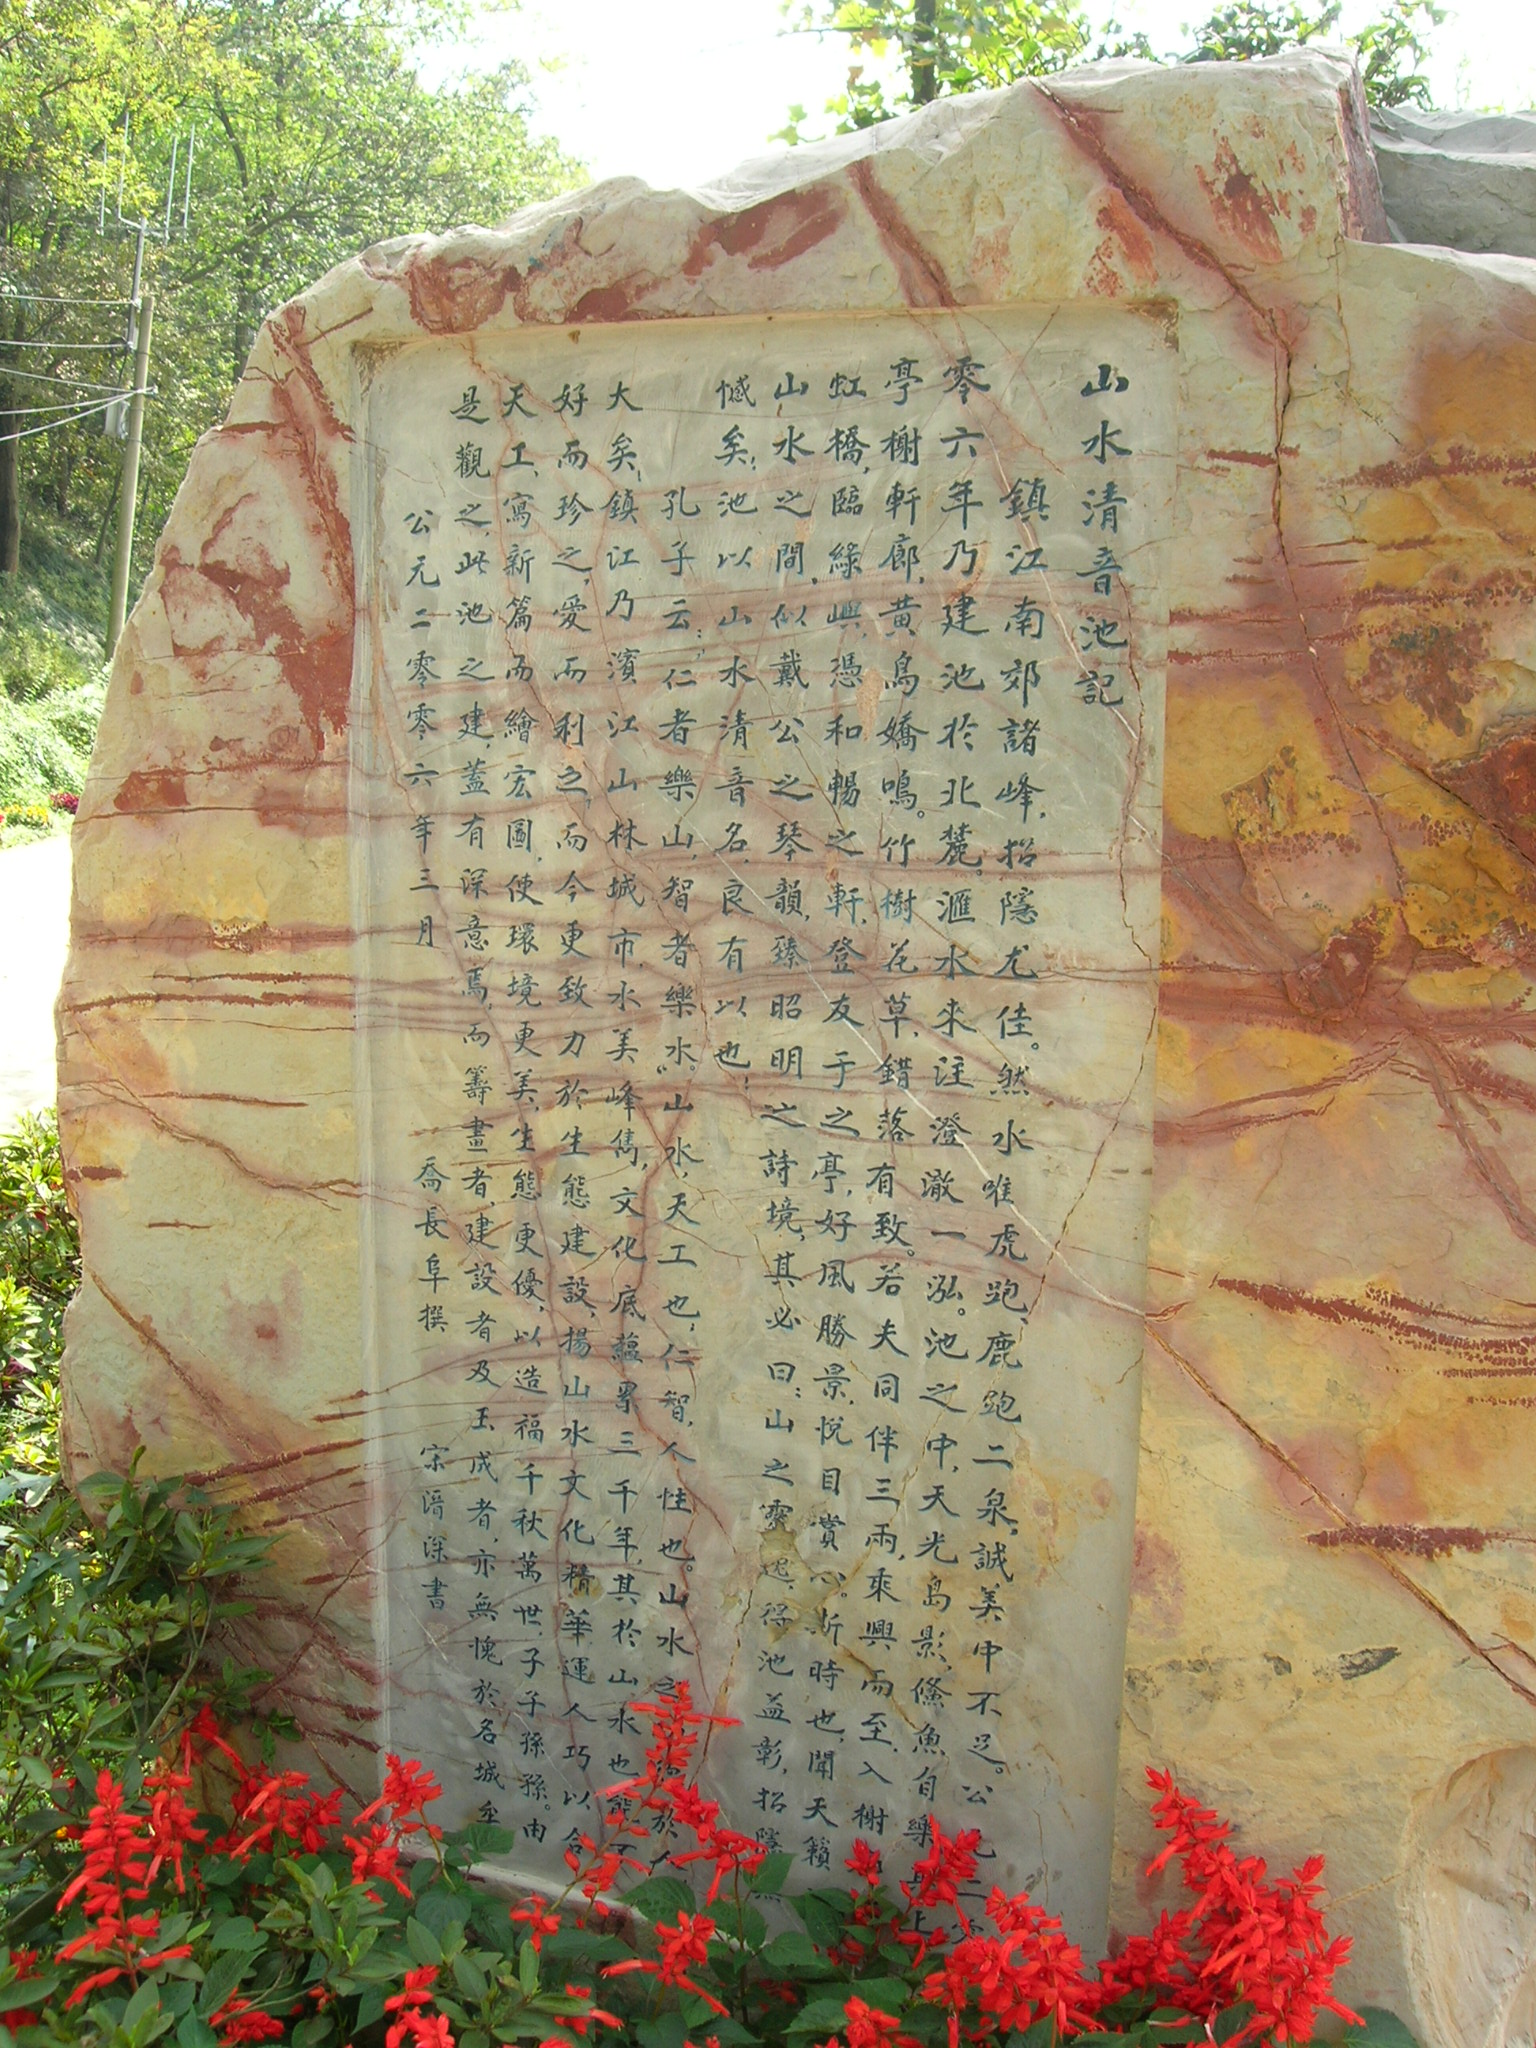 山水清音池記
鎮江南郊諸峰，招隱尤佳。然水唯虎跑、鹿跑二泉，誠美中不足。公元二零
零六年乃建池於北麓。滙水來注澄澈一泓。池之中，天光島影，鯈魚自樂，其上
亭榭軒廊，黃鳥嬌鳴。竹樹花草，錯落有致。若夫同伴三兩，乘興而至，入榭
虹橋，臨綠嶼，憑和暢之軒，登友于之亭，好風勝景，悅目賞心。斯時也，聞天籟
山水之間，似戴公之琴韻，臻昭明之詩境，其必曰：山之靈逸，得池益彰，招隱
憾矣；池以山水清音名，良有以也！
孔子云：“仁者樂山，智者樂水。”山水，天工也，仁智，人性也。山水之於人
大矣，鎮江乃濱江山林城市，水美峰雋，文化底蘊累三千年，其於山水也，能
好而珍之，愛而利之，而今更致力於生態建設，揚山水文化精華，運人巧以合
天工，寫新篇而繪宏圖，使環境更美，生態更優，以造福千秋萬世，子子孫孫。由
是觀之，此池之建，蓋有深意焉，而籌畫者，建設者及玉成者，亦無愧於名城矣
公元二零零六年三月 喬長阜撰 宋深書